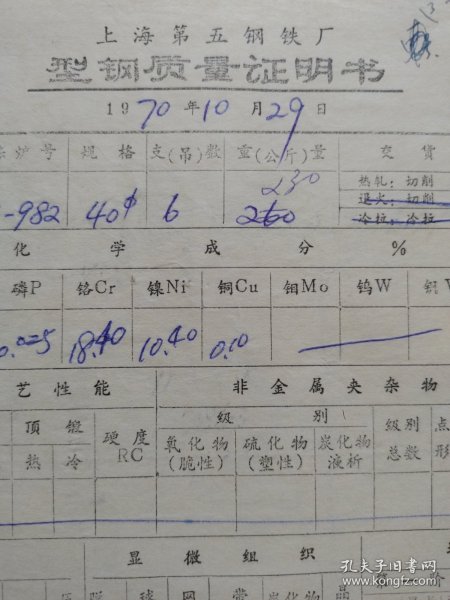 上海第五钢铁厂
型钢质量证明书
1970年10月29日
炉号 规格 支(吊)数 重(公斤)量 交货
热轧：切削
退火：切削
冷拉：冷拉
-982 40φ 6 230
化学成分%
磷P 铬Cr 镍Ni 铜Cu 钼Mo 钨W
0.025 18.40 10.40 0.10
艺性能 非金属夹杂物
顶锻 硬度RC 级别 级别总数 点
热 冷 氧化物(脆性) 硫化物(塑性) 炭化物液析 形
显微组织
球 网 带 炭化物 晶
孔夫子旧书网